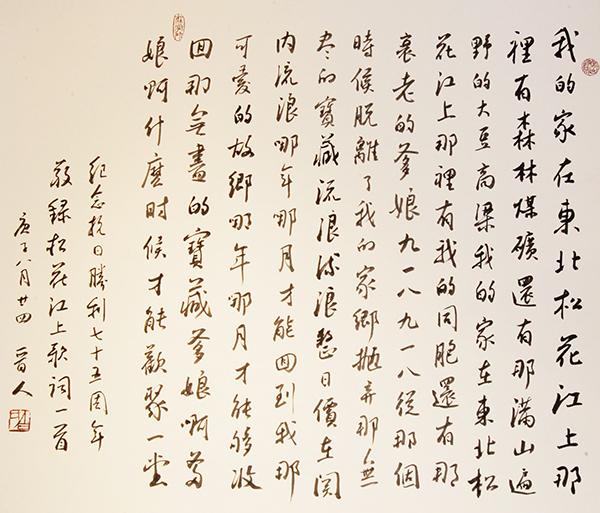 我的家在東北松花江上那
裡有森林煤礦還有那滿山遍
野的大豆高梁我的家在東北松
花江上那裡有我的同胞還有那
衰老的爹娘九一八九一八從那個
時候脫離了我的家鄉拋弃那無
尽的寶藏流浪流浪整日價在関
内流浪哪年那月才能回到我那
可愛的故鄉哪年那月才能够收
回那無盡的寶藏爹娘啊爹
娘啊什麼时候才能歡聚一堂
紀念抗日勝利七十五周年
敬録松花江上歌詞一首
庚子八月廿四 晉人